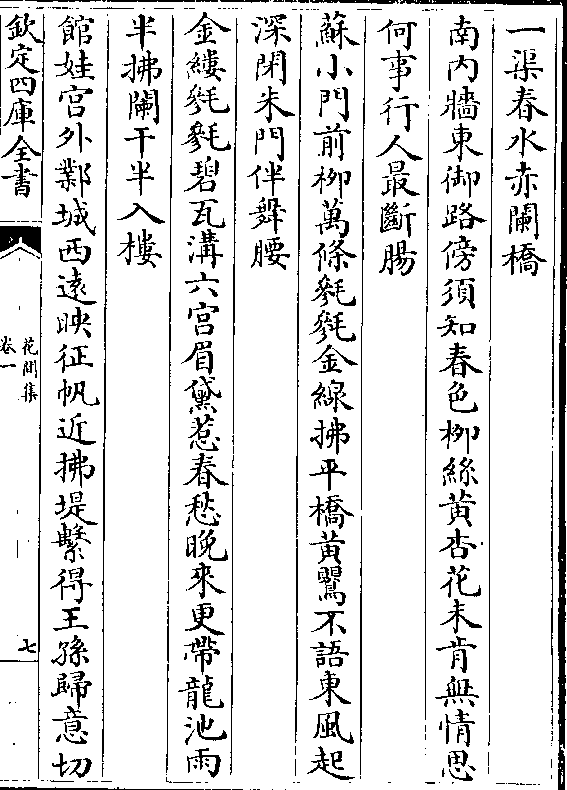 一渠春水赤闌橋
南內牆東御路傍須知春色柳絲黃杏花未肯無情思
何事行人最斷腸
蘇小門前柳萬條毿毿金線拂平橋黃鸎不語東風起
深閉朱門伴舞腰
金縷毿毿碧瓦溝六宮眉黛惹春愁晚來更帶龍池雨
半拂闌干半入樓
館娃宮外鄴城西遠映征帆近拂堤繫得王孫歸意切
欽定四庫全書
花間集
卷一
七